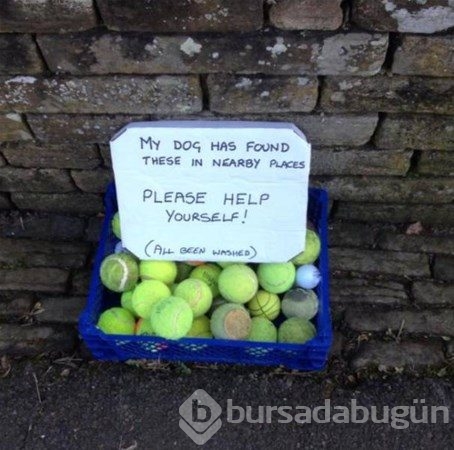 MY DOG HAS FOUND
THESE IN NEARBY PLACES
PLEASE HELP
YOURSELF!
(ALL BEEN WASHED)
b bursadabugün